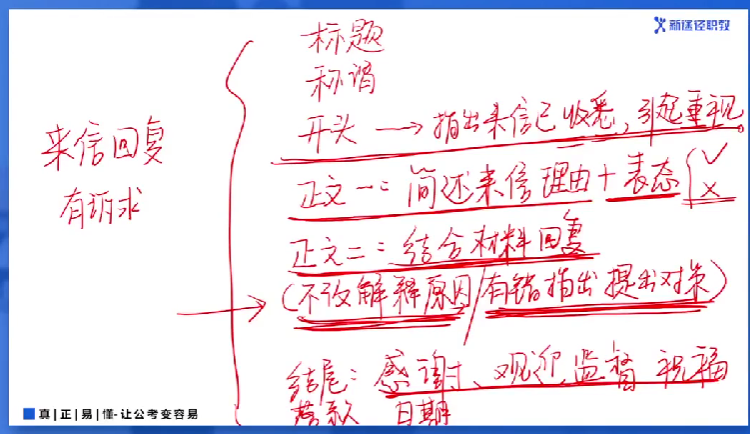 新途径职教
标题
称谓
开头 → 指出来信已收悉，引起重视。
来信回复
有诉求
正文一：简述来信理由＋表态{√
×
正文二：结合材料回复
(不改解释原因/有错指出提出对策)
结尾：感谢、欢迎监督 祝福
落款 日期
真|正|易|懂-让公考变容易